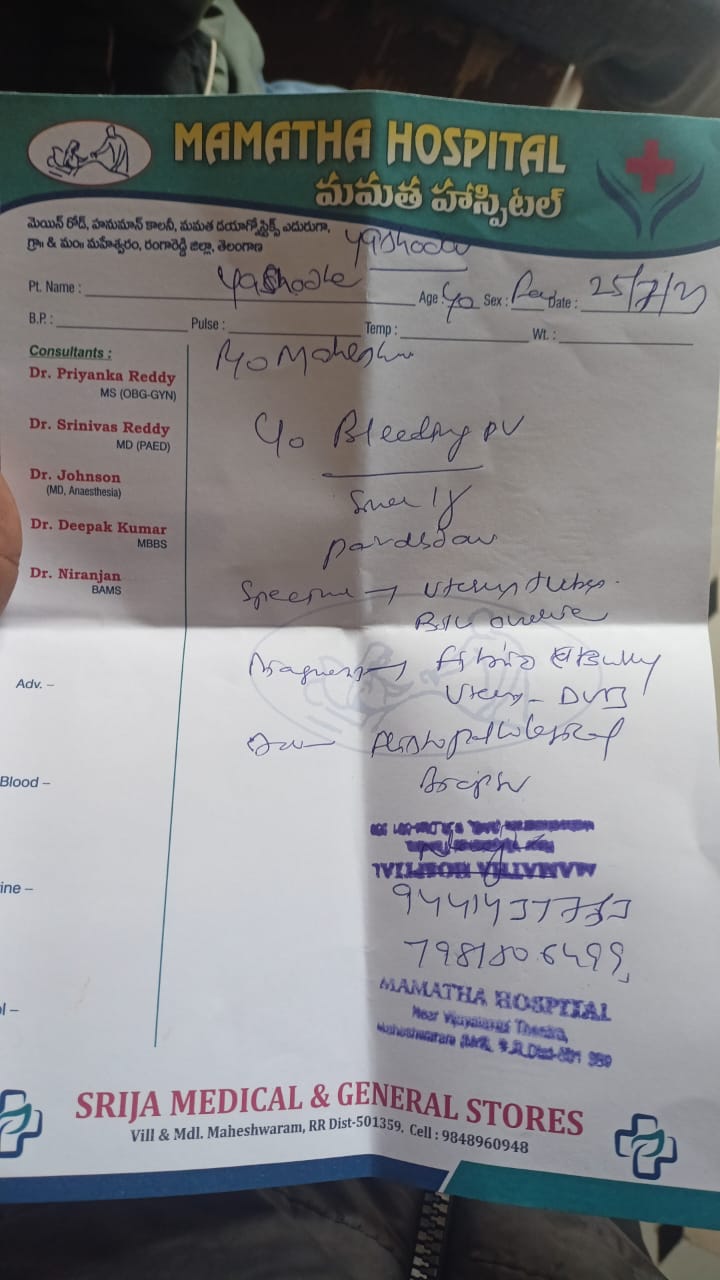 MAMATHA HOSPITAL
మమత హాస్పిటల్
మెయిన్ రోడ్, హనుమాన్ కాలనీ, మమత డయాగ్నోస్టిక్స్ ఎదురుగా,
గ్రా॥ & మం॥ మహేశ్వరం, రంగారెడ్డి జిల్లా, తెలంగాణ
Yashoda
Pt. Name : Yashoda Age : 40 Sex : Date : 25/7/
B.P. : Pulse : Temp : Wt. :
Consultants :
R/o Mahesh
Dr. Priyanka Reddy
MS (OBG-GYN)
Dr. Srinivas Reddy
MD (PAED)
C/o Bleeding PV
Dr. Johnson
(MD, Anaesthesia)
Since 1
Dr. Deepak Kumar
MBBS
Dr. Niranjan
BAMS
Specime → Uterus
B/L
Adv. –
Diagnosis → Fibroid Bulky
Uterus - DUB
Histopathological
Blood –
MAMATHA HOSPITAL
ine –
7981806499
l –
MAMATHA HOSPITAL
Near Theatre,
SRIJA MEDICAL & GENERAL STORES
Vill & Mdl. Maheshwaram, RR Dist-501359. Cell : 9848960948